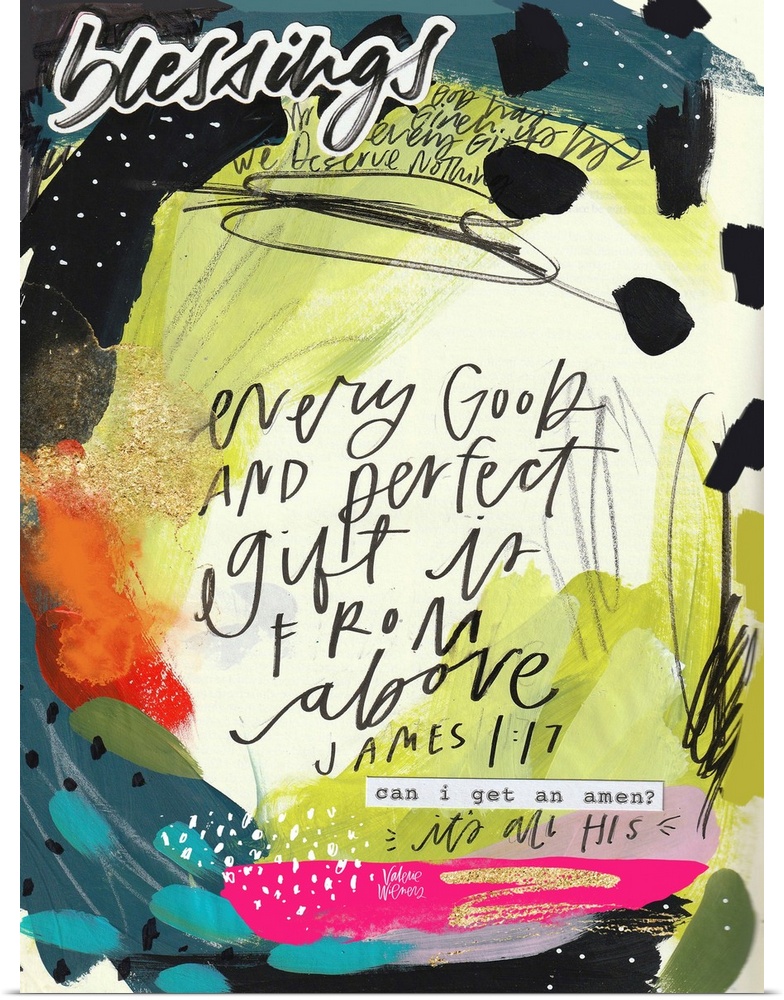 blessings
God has
given us
every gift
We Deserve Nothing
every Good
AND perfect
gift is
FROM
above
JAMES 1:17
can i get an amen?
it's all HIS
Valerie
Wieners